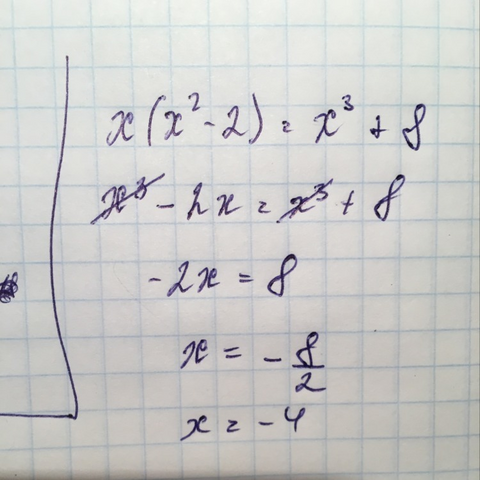 x(x² - 2) = x³ + 8
x³ - 2x = x³ + 8
-2x = 8
x = -8/2
x = -4